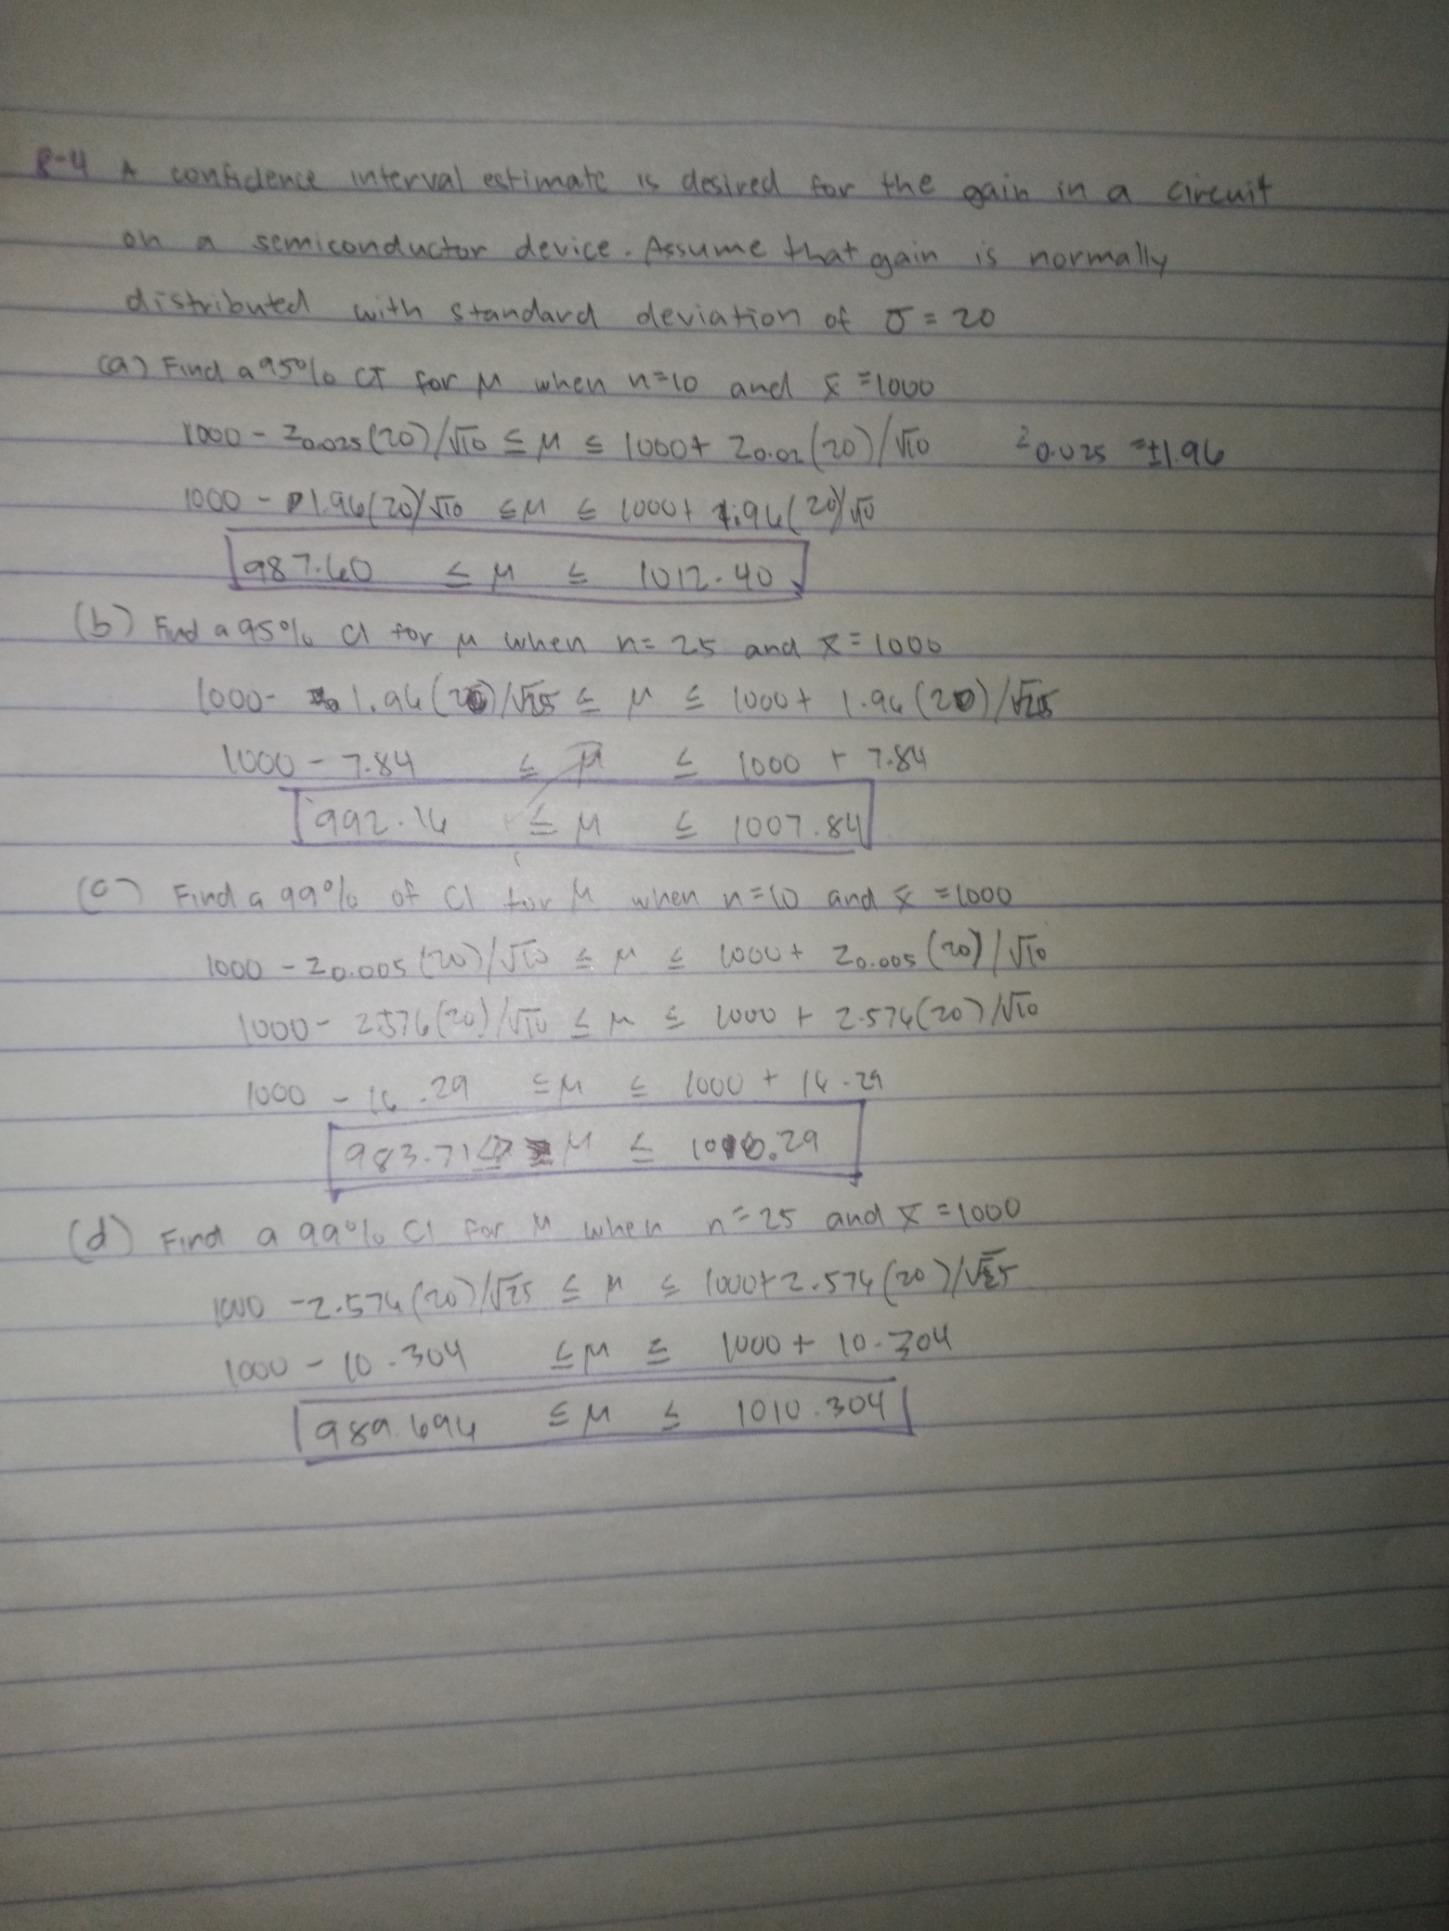 8-4 A confidence interval estimate is desired for the gain in a circuit
on a semiconductor device. Assume that gain is normally
distributed with standard deviation of σ = 20
(a) Find a 95% CI for μ when n=10 and x̄ =1000
1000 - z0.025(20)/√10 ≤ μ ≤ 1000+ z0.02(20)/√10 z0.025 =±1.96
1000 - 1.96(20)/√10 ≤ μ ≤ 1000+ 1.96(20)/√10
987.60 ≤ μ ≤ 1012.40
(b) Find a 95% CI for μ when n= 25 and x̄ = 1000
1000- 1.96(20)/√25 ≤ μ ≤ 1000+ 1.96(20)/√25
1000 - 7.84 ≤ μ ≤ 1000 + 7.84
992.16 ≤ μ ≤ 1007.84
(c) Find a 99% of CI for μ when n=10 and x̄ =1000
1000 - z0.005(20)/√10 ≤ μ ≤ 1000+ z0.005(20)/√10
1000- 2.576(20)/√10 ≤ μ ≤ 1000 + 2.576(20)/√10
1000 - 16.29 ≤ μ ≤ 1000 + 16.29
983.71 ≤ μ ≤ 1016.29
(d) Find a 99% CI for μ when n=25 and x̄ =1000
1000 -2.576(20)/√25 ≤ μ ≤ 1000+2.576(20)/√25
1000 - 10.304 ≤ μ ≤ 1000+ 10.304
989.696 ≤ μ ≤ 1010.304